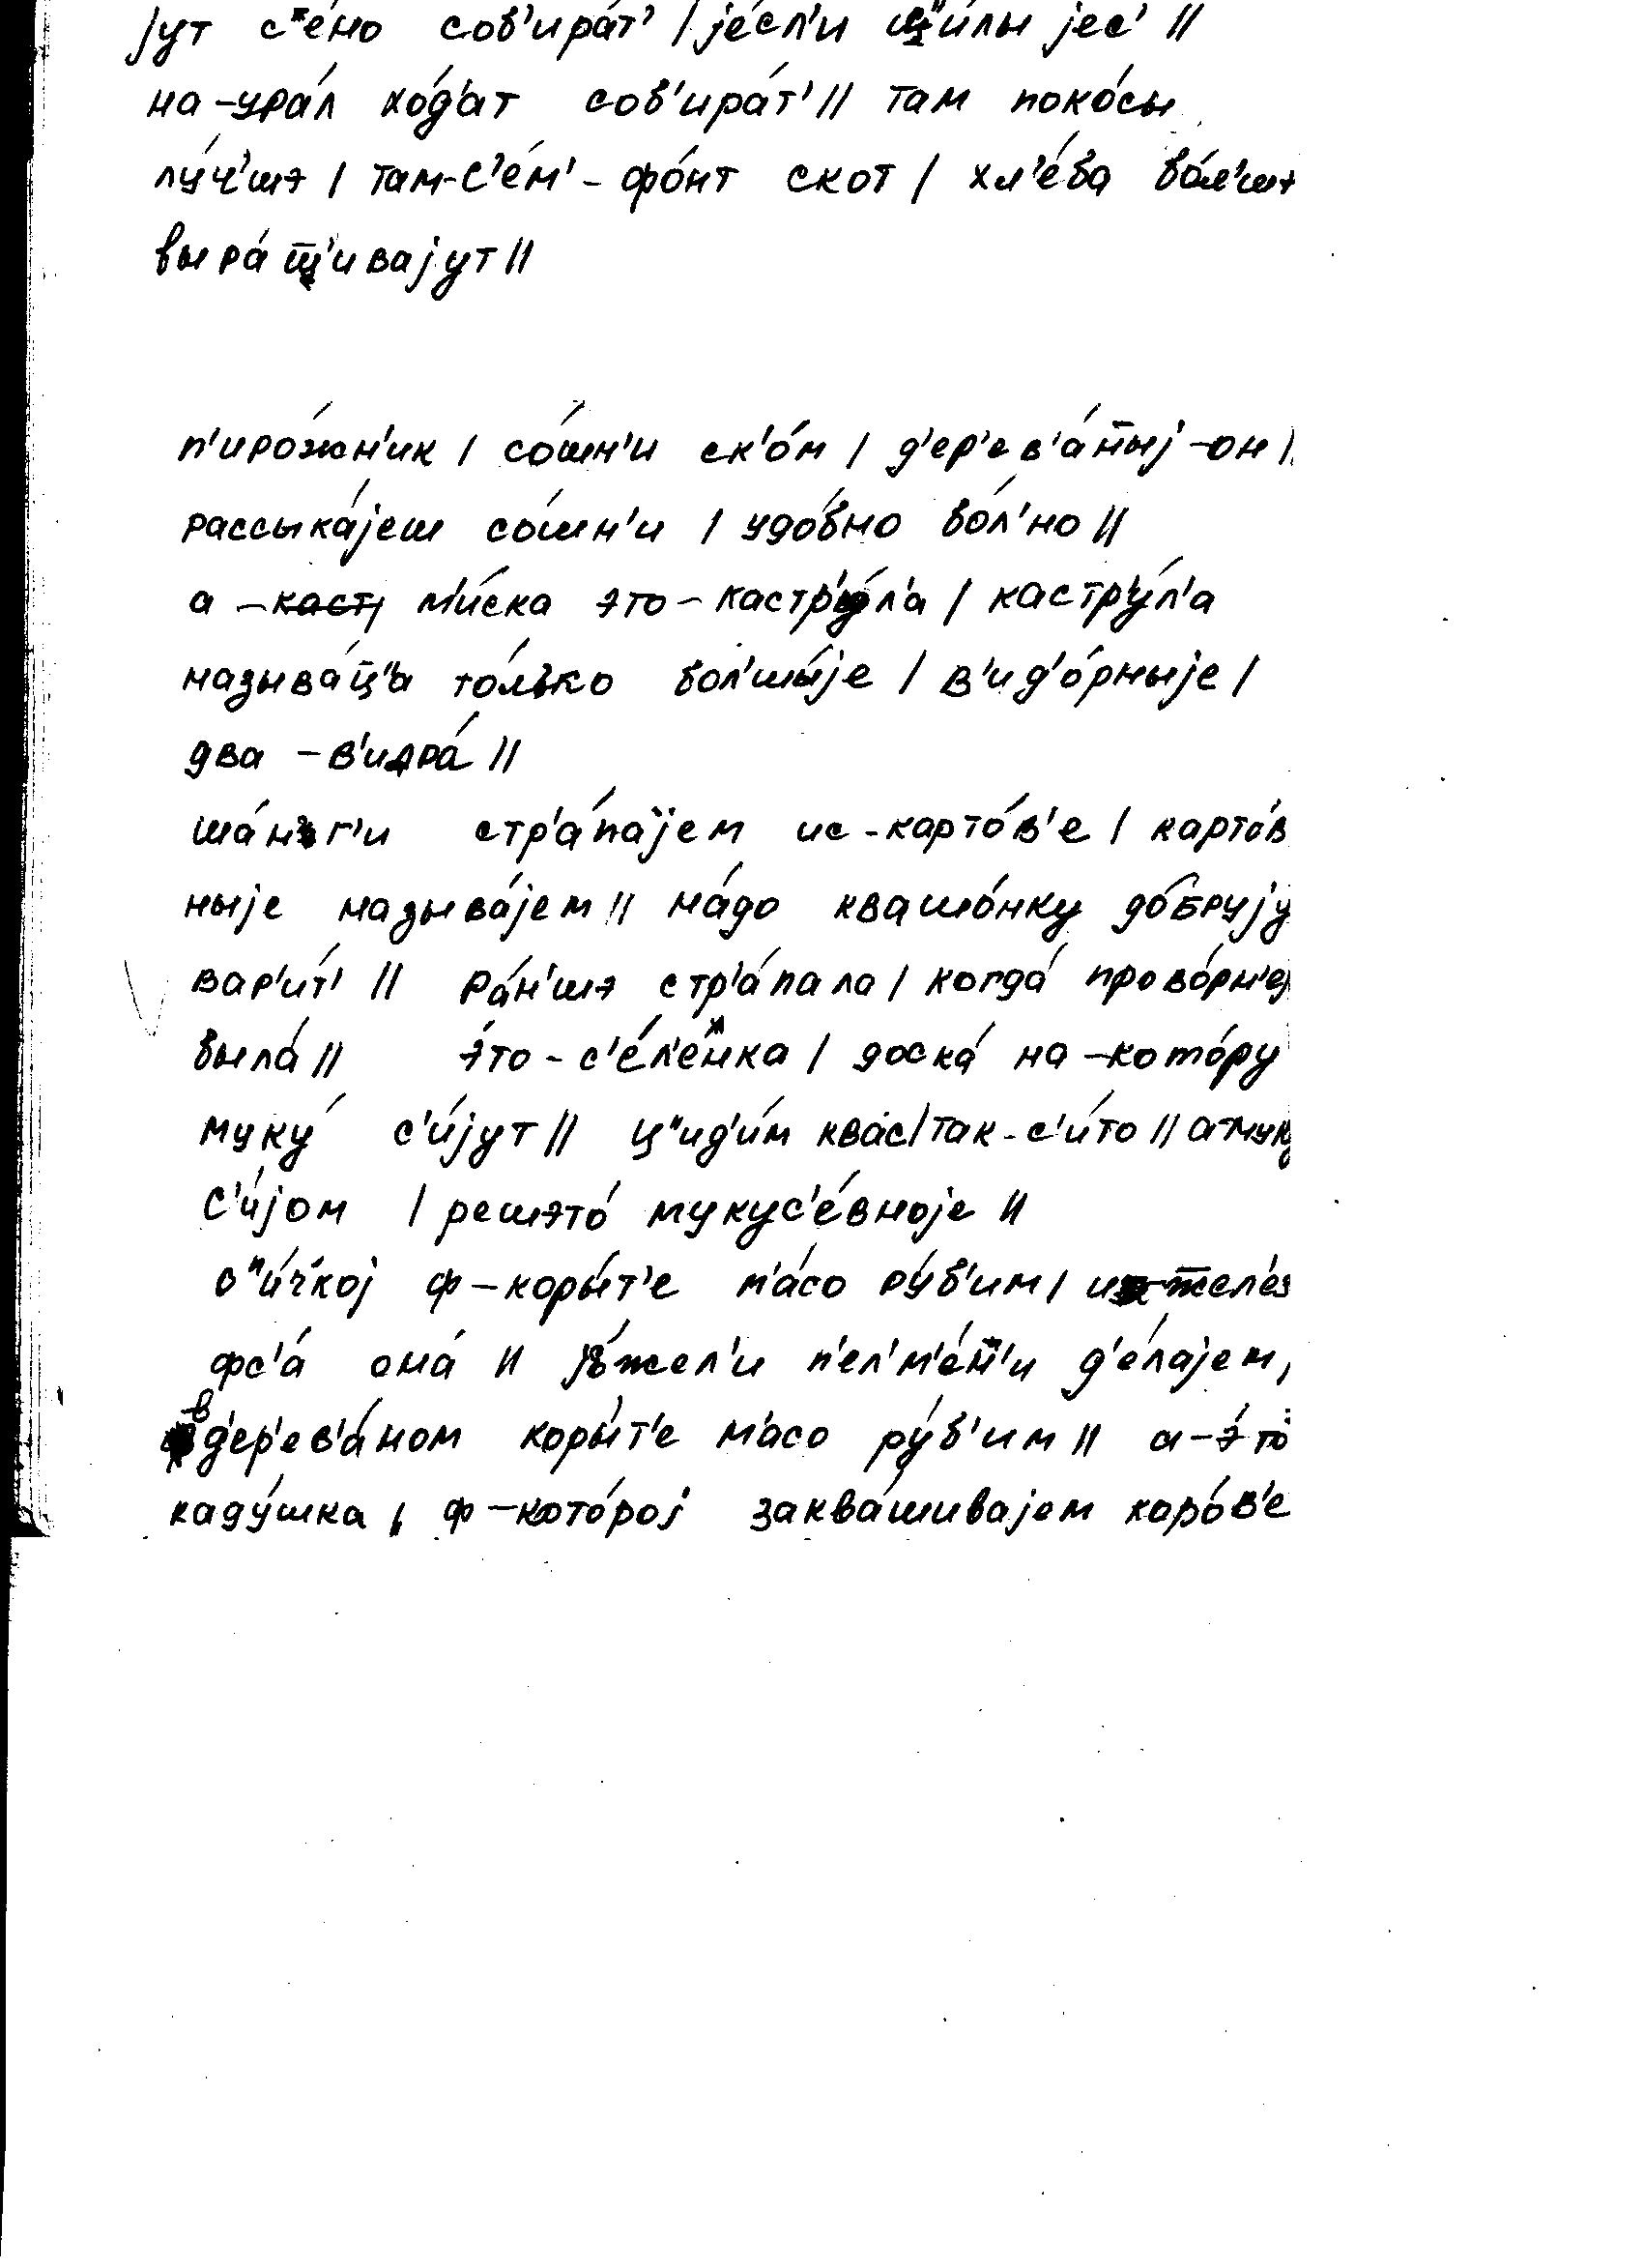 jут с"éно соб'ирáт' / jéсл'и с"и́лы jес' //
на-урáл хóд'ат соб'ирáт' // там покóсы
лýч'шэ / там-с'éм'-фóнт скот / хл'éба бóл'шэ
вырáш̅'ивајут //
п'ирóжн'ик / сóшн'и ск'óм / д'ер'ев'áн̅ыј-он /
рассыкáјеш сóшн'и / удóбно бóл'но //
а – м'и́ска это-кастр'ýл'а / кастр'ýл'а
назывáц̅'а тóл'ко бол'шы́је / в'ид'óрныје /
два –в'идрá //
шáн'г'и стр'áпајем ис-картóв'е / картóв
ныје назывáјем // нáдо квашóнку дóбрују
вар'и́т' // рáн'шэ стр'áпала / когдá провóрн'еј
былá // э́то-с'éл'енка / доскá на-котóру
мукý с'и́јут // ц"ид'и́м квас / так-с'и́то // а-мукý
с'и́јом / решэтó мукус'éвноје //
с"и́ч'кој ф-коры́т'е м'áсо рýб'им / из-жел'éз
фс'á онá // jéжел'и п'ел'м'éн̅'и д'éлајем,
в-д'ер'ев'áном коры́т'е м'áсо рýб'им // а-э́то
кадýшка, ф-котóрој заквáшивајем корóв'е